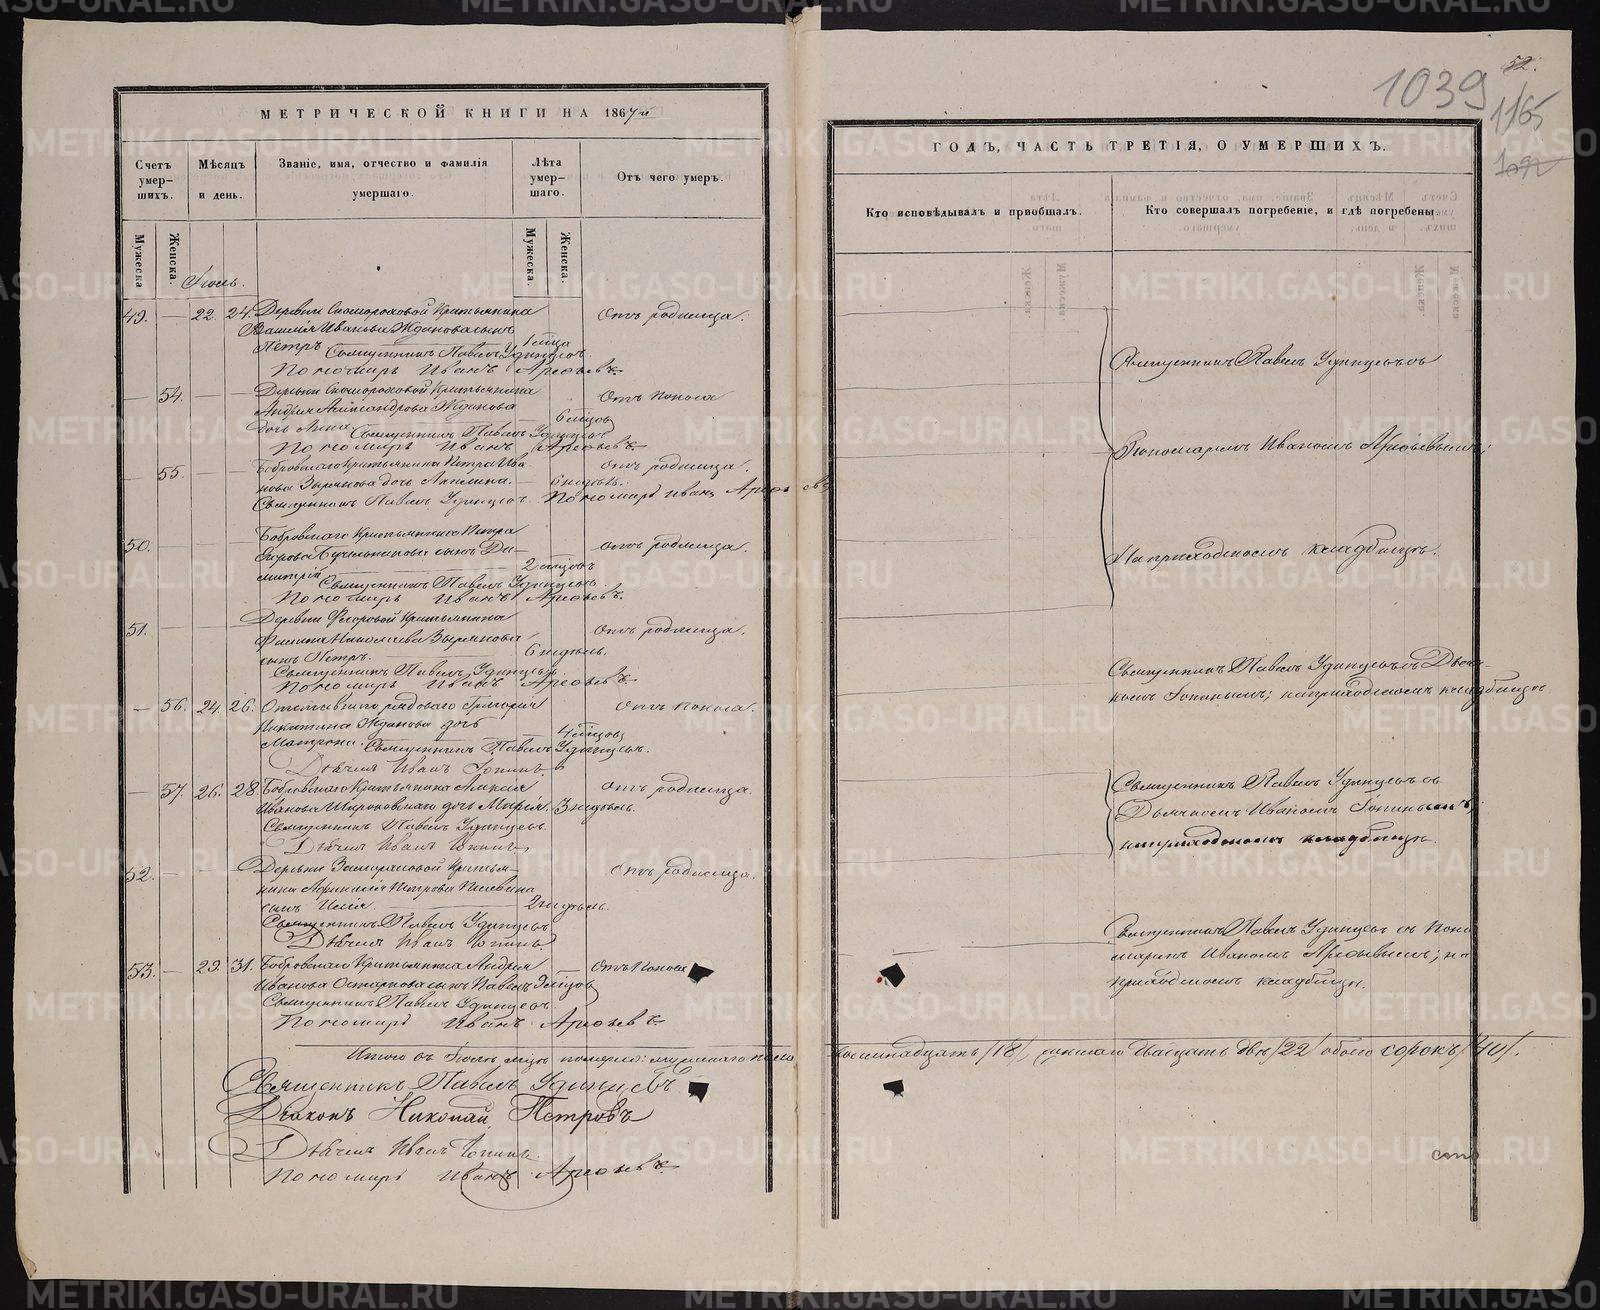 МЕТРИЧЕСКОЙ КНИГИ НА 1867й
Счетъ умер-шихъ.
Мѣсяцъ и день.
Званіе, имя, отчество и фамилія умершаго.
Лѣта умер-шаго.
Отъ чего умеръ.
Мужеска
Женска.
Мужеска.
Женска.
Іюль.
49. — 22. 24. Деревни Скомороховой Крестьянина Отъ родимца.
Ивановъ Ждановъ сынъ
Петръ 1 мѣсяца
Священникъ Павелъ Удинцевъ.
Пономарь Иванъ Арефьевъ.
— 54. — — Деревни Скомороховой Крестьянина Отъ поноса
Андрея Александрова Жданова
дочь Анна 6 мѣсяцовъ
Священникъ Павелъ Удинцевъ
Пономарь Иванъ Арефьевъ.
— 55. — — Бобровскаго Крестьянина Петра Ива- Отъ родимца.
нова дочь — 6 недѣль.
Священникъ Павелъ Удинцевъ Пономарь Иванъ Арефьевъ
50. — — — Бобровскаго Крестьянина Петра Отъ родимца.
сынъ Ди-
митрій 2 мѣсяцовъ
Священникъ Павелъ Удинцевъ.
Пономарь Иванъ Арефьевъ.
51. — — — Деревни Крестьянина Отъ родимца.
Николаева Зырянова
сынъ Петръ. 6 недѣль.
Священникъ Павелъ Удинцевъ
Пономарь Иванъ Арефьевъ
— 56. 24. 26. Отставнаго рядоваго Григорія Отъ поноса.
Никитина Жданова дочь
Матрона. 4 мѣсяцовъ
Священникъ Павелъ Удинцевъ.
Дьячекъ Иванъ
— 57. 26. 28 Бобровскаго Крестьянина Алексѣя Отъ родимца.
Иванова Широковскаго дочь Марія. 3 недѣль.
Священникъ Павелъ Удинцевъ.
Дьячекъ Иванъ
52. — — — Деревни Крестьян- Отъ родимца.
нина Афанасія Петрова
сынъ Илія. 2 недѣль.
Священникъ Павелъ Удинцевъ
Дьячекъ Иванъ
53. — 29. 31. Бобровскаго Крестьянина Андрея Отъ поноса
Иванова сынъ Павелъ мѣсяцовъ
Священникъ Павелъ Удинцевъ
Пономарь Иванъ Арефьевъ
Итого въ Іюлѣ мцѣ померло: мужескаго пола
Священникъ Павелъ Удинцевъ
Діаконъ Николай Петровъ
Дьячекъ Иванъ
Пономарь Иванъ Арефьевъ
52.
1039
1165
1092
ГОДЪ, ЧАСТЬ ТРЕТІЯ, О УМЕРШИХЪ.
Кто исповѣдывалъ и пріобщалъ.
Кто совершалъ погребеніе, и гдѣ погребены.
Священникъ Павелъ Удинцевъ съ
Пономаремъ Иваномъ Арефьевымъ;
На приходскомъ кладбищѣ.
Священникъ Павелъ Удинцевъ съ Дьяч-
комъ на приходскомъ кладбищѣ
Священникъ Павелъ Удинцевъ съ
Дьячкомъ Иваномъ
на приходскомъ кладбищѣ.
Священникъ Павелъ Удинцевъ съ Поно
маремъ Иваномъ Арефьевымъ; на
приходскомъ кладбищѣ.
восемнадцать /18/, женскаго двадцать два /22/ обоего сорокъ /40/.
METRIKI.GASO-URAL.RU